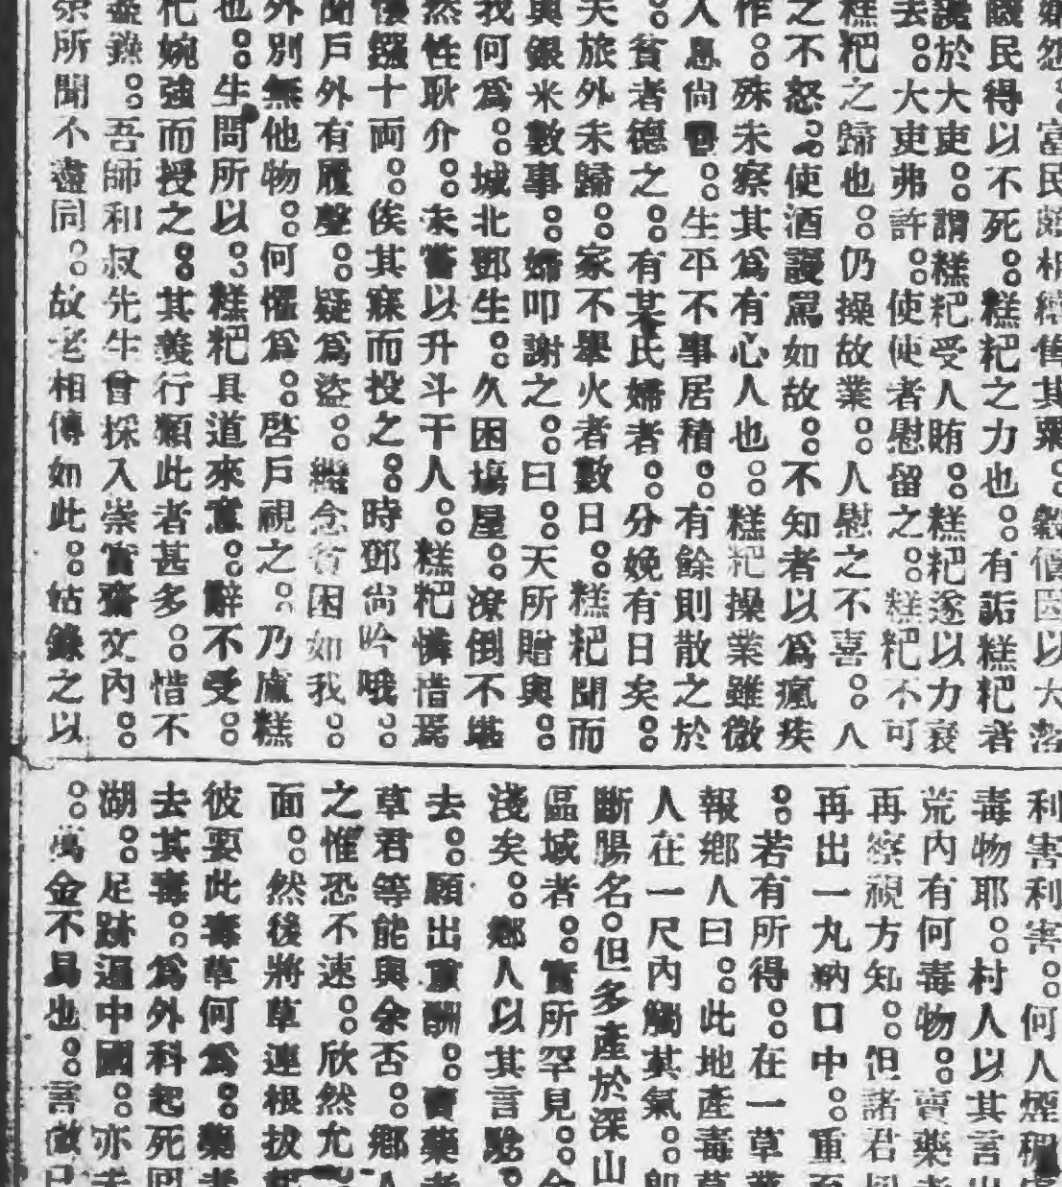 怨。富民。相。其粟。以大
饑民得以不死。糕粑之力也。有詬糕粑者
讒於大吏。謂糕粑受人賄。糕粑遂以力衰
去。大吏弗許。使使者慰留之。糕粑不可
糕粑之歸也。仍操故業。人慰之不喜。人
之不怒。使酒謾罵如故。不知者以爲瘋疾
作。殊未察其爲有心人也。糕粑操業雖微
人息尙。生平不事居積。有餘則散之於
。貧者德之。有某氏婦者。分娩有日矣。
夫旅外未歸。家不舉火者數日。糕粑聞而
與銀米數事。婦叩謝之。曰。天所贈與。
我何爲。城北鄧生。久困場屋。潦倒不堪
然性耿介。未嘗以升斗干人。糕粑憐惜焉
懷鏹十両。俟其寐而投之。時鄧尙吟哦。
聞戶外有履聲。疑爲盜。繼念貧困如我。
外別無他物。何懼爲。啓戶視之。乃盧糕
也。生問所以。糕粑具道來意。辭不受。
粑婉強而授之。其義行類此者甚多。惜不
盡錄。吾師和叔先生曾採入崇實齋文內。
余所聞不盡同。故老相傳如此。姑錄之以
利害利害。何人煙稠
毒物耶。村人以其言出
荒內有何毒物。賣藥者
再察視方知。但諸君
再出一丸納口中。重至
。若有所得。在一草叢
報鄉人曰。此地產毒草
人在一尺內觸其氣。卽
斷腸名。但多產於深山
區域者。實所罕見。今
淺矣。鄉人以其言駭。
去。願出重酬。賣藥者
草君等能與余否。鄉人
之惟恐不速。欣然允
面。然後將草連根拔
彼要此毒草何爲。藥者
去其毒。爲外科起死回
湖。足跡遍中國。亦未
。萬金不易也。言敝已